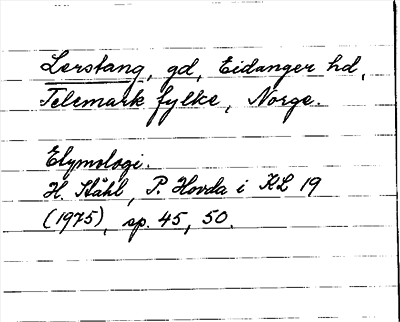 Lerstang, gd, Eidanger hd,
Telemark fylke, Norge.
Etymologi.
H. Ståhl, P. Hovda i KL 19
(1975), sp. 45, 50.